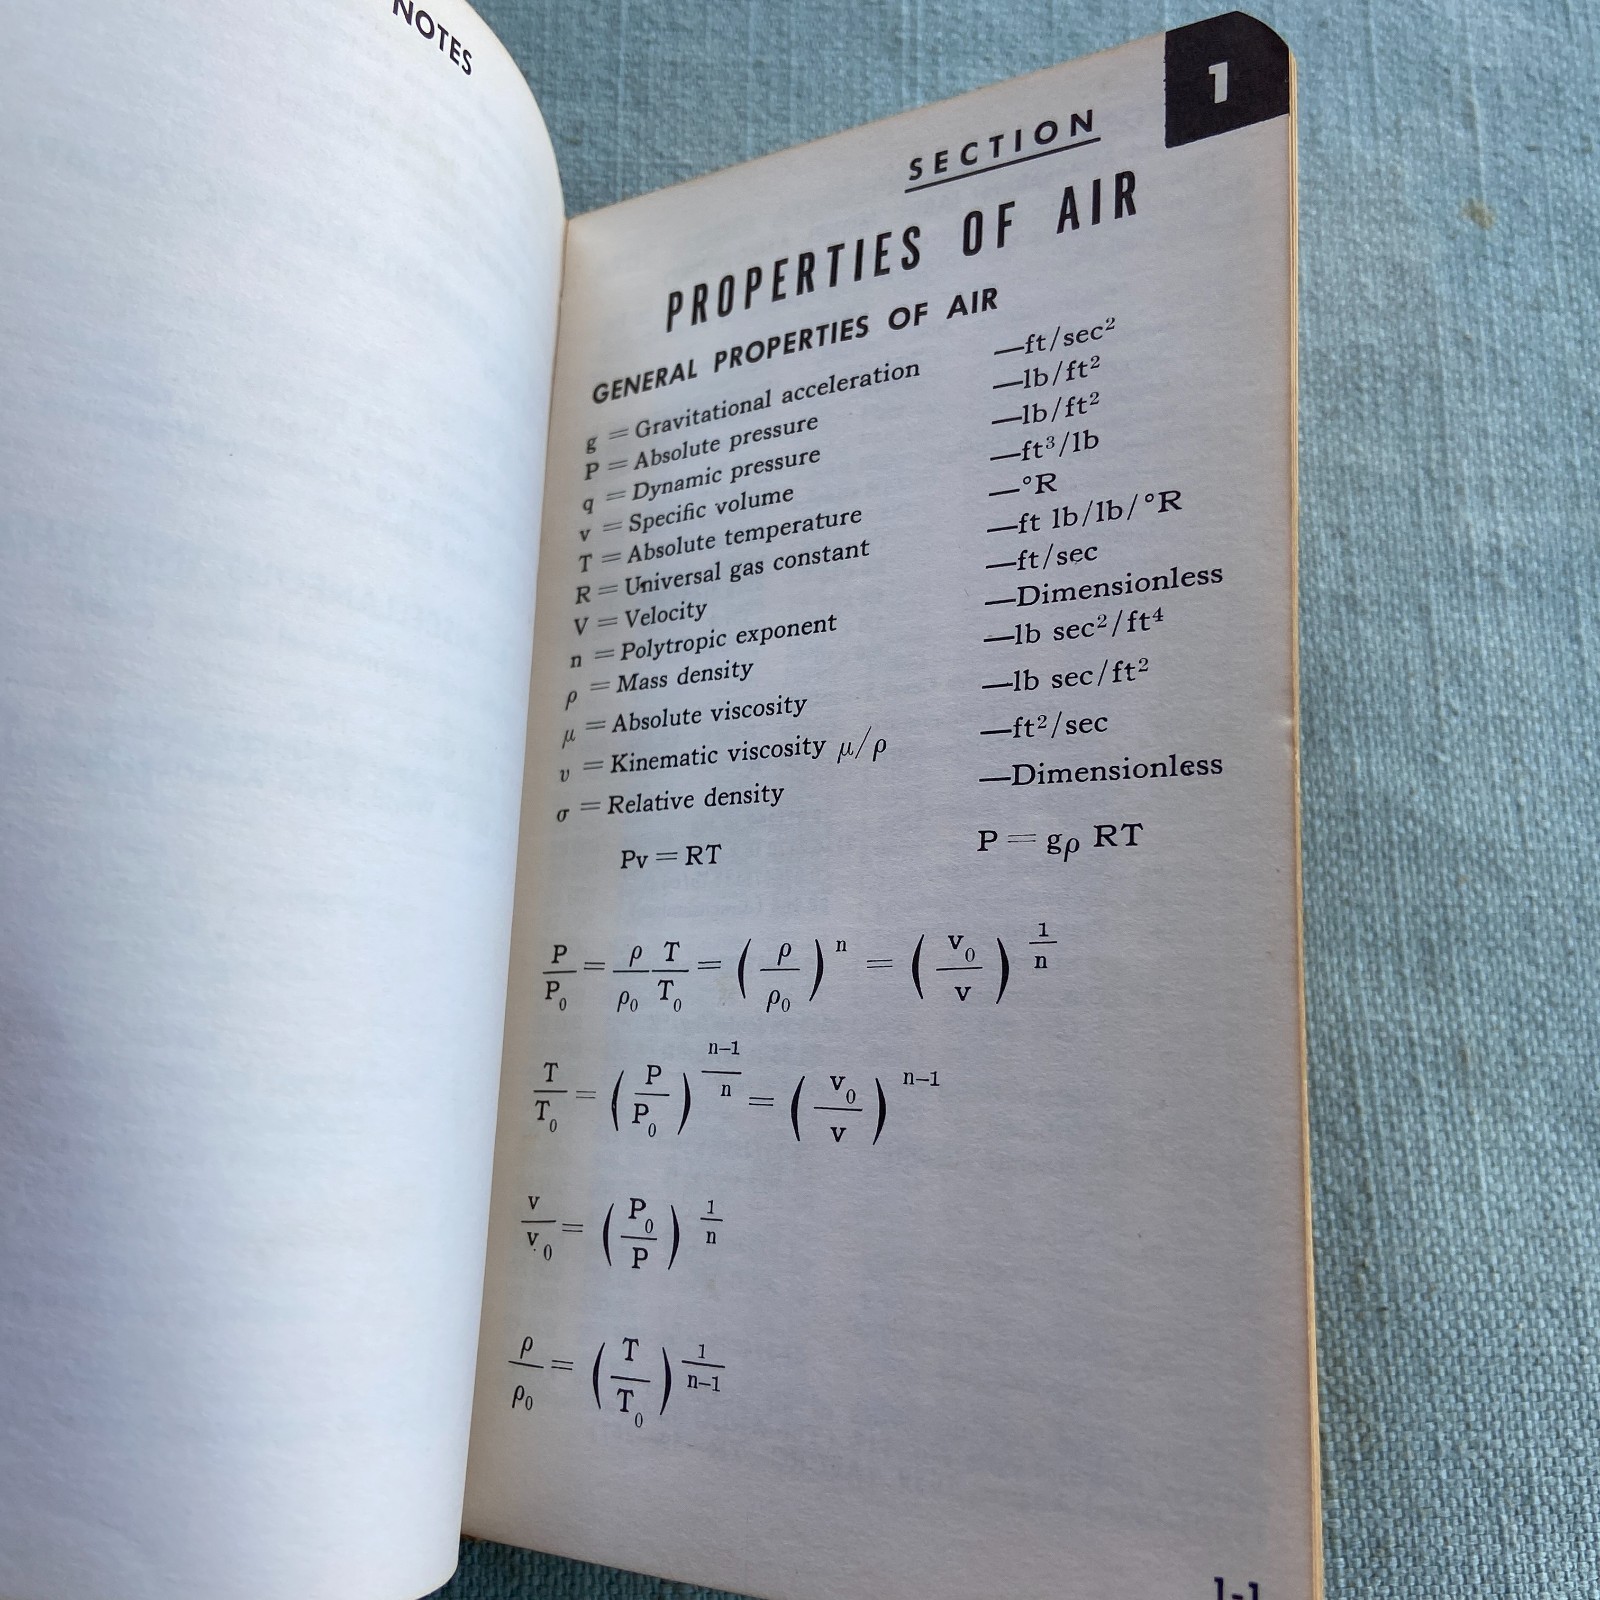 NOTES
1
SECTION
PROPERTIES OF AIR
GENERAL PROPERTIES OF AIR
g = Gravitational acceleration —ft/sec²
P = Absolute pressure —lb/ft²
q = Dynamic pressure —lb/ft²
v = Specific volume —ft³/lb
T = Absolute temperature —°R
R = Universal gas constant —ft lb/lb/°R
V = Velocity —ft/sec
n = Polytropic exponent —Dimensionless
ρ = Mass density —lb sec²/ft⁴
μ = Absolute viscosity —lb sec/ft²
υ = Kinematic viscosity μ/ρ —ft²/sec
σ = Relative density —Dimensionless
Pv = RT P = gρ RT
P/P₀ = ρ/ρ₀ T/T₀ = (ρ/ρ₀)^n = (v₀/v)^(1/n)
T/T₀ = (P/P₀)^((n–1)/n) = (v₀/v)^(n–1)
v/v₀ = (P₀/P)^(1/n)
ρ/ρ₀ = (T/T₀)^(1/(n–1))
1-1